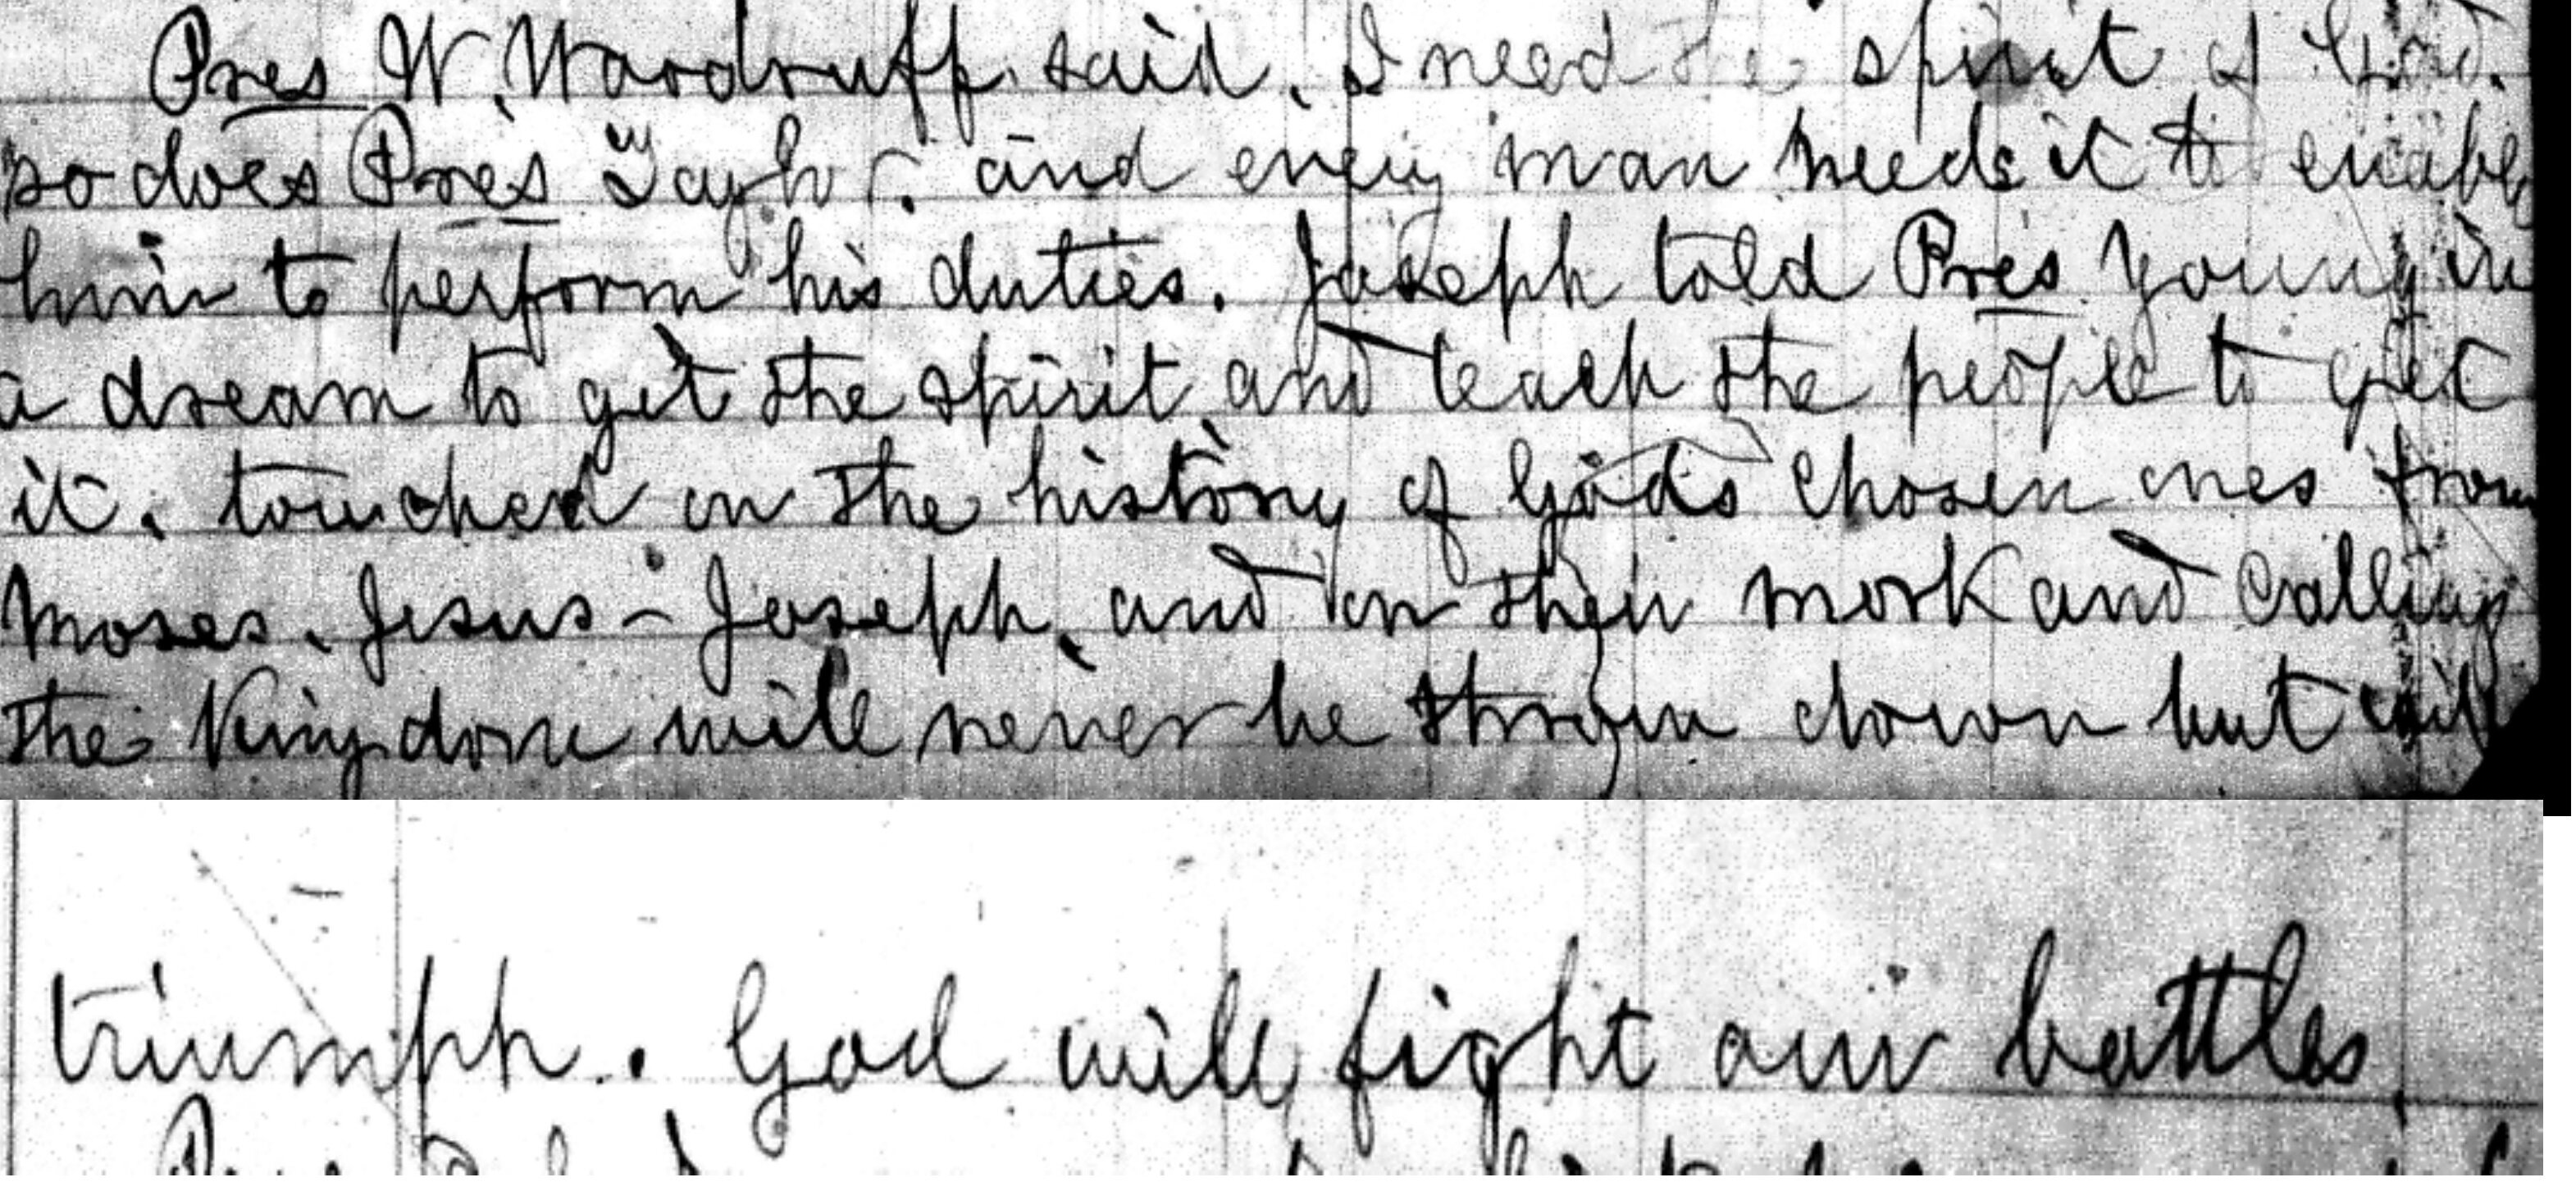 Pres W. Woodruff said. I need the spirit of God.
so does Pres Taylor. and every man needs it to enable
him to perform his duties. Joseph told Pres Young in
a dream to get the spirit and teach the people to get
it. touched on the history of Gods chosen ones from
Moses. Jesus - Joseph. and on their work and calling
the Kingdom will never be thrown down but will
triumph. God will fight our battles.